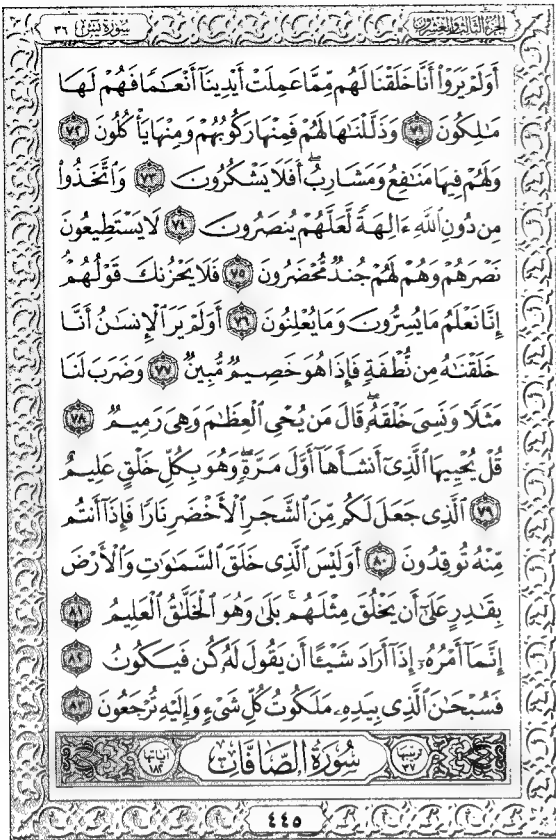 الجزء الثالث والعشرون
سورة يس ٣٦
أَوَلَمْ يَرَوْا۟ أَنَّا خَلَقْنَا لَهُم مِّمَّا عَمِلَتْ أَيْدِينَآ أَنْعَٰمًا فَهُمْ لَهَا
مَٰلِكُونَ ٧١ وَذَلَّلْنَٰهَا لَهُمْ فَمِنْهَا رَكُوبُهُمْ وَمِنْهَا يَأْكُلُونَ ٧٢
وَلَهُمْ فِيهَا مَنَٰفِعُ وَمَشَارِبُ ۖ أَفَلَا يَشْكُرُونَ ٧٣ وَٱتَّخَذُوا۟
مِن دُونِ ٱللَّهِ ءَالِهَةً لَّعَلَّهُمْ يُنصَرُونَ ٧٤ لَا يَسْتَطِيعُونَ
نَصْرَهُمْ وَهُمْ لَهُمْ جُندٌ مُّحْضَرُونَ ٧٥ فَلَا يَحْزُنكَ قَوْلُهُمْ ۘ
إِنَّا نَعْلَمُ مَا يُسِرُّونَ وَمَا يُعْلِنُونَ ٧٦ أَوَلَمْ يَرَ ٱلْإِنسَٰنُ أَنَّا
خَلَقْنَٰهُ مِن نُّطْفَةٍ فَإِذَا هُوَ خَصِيمٌ مُّبِينٌ ٧٧ وَضَرَبَ لَنَا
مَثَلًا وَنَسِىَ خَلْقَهُۥ ۖ قَالَ مَن يُحْىِ ٱلْعِظَٰمَ وَهِىَ رَمِيمٌ ٧٨
قُلْ يُحْيِيهَا ٱلَّذِىٓ أَنشَأَهَآ أَوَّلَ مَرَّةٍ ۖ وَهُوَ بِكُلِّ خَلْقٍ عَلِيمٌ
٧٩ ٱلَّذِى جَعَلَ لَكُم مِّنَ ٱلشَّجَرِ ٱلْأَخْضَرِ نَارًا فَإِذَآ أَنتُم
مِّنْهُ تُوقِدُونَ ٨٠ أَوَلَيْسَ ٱلَّذِى خَلَقَ ٱلسَّمَٰوَٰتِ وَٱلْأَرْضَ
بِقَٰدِرٍ عَلَىٰٓ أَن يَخْلُقَ مِثْلَهُم ۚ بَلَىٰ وَهُوَ ٱلْخَلَّٰقُ ٱلْعَلِيمُ ٨١
إِنَّمَآ أَمْرُهُۥٓ إِذَآ أَرَادَ شَيْـًٔا أَن يَقُولَ لَهُۥ كُن فَيَكُونُ ٨٢
فَسُبْحَٰنَ ٱلَّذِى بِيَدِهِۦ مَلَكُوتُ كُلِّ شَىْءٍ وَإِلَيْهِ تُرْجَعُونَ ٨٣
ترتيبها ٣٧ سُورَةُ الصَّافَّاتِ آياتها ١٨٢
٤٤٥